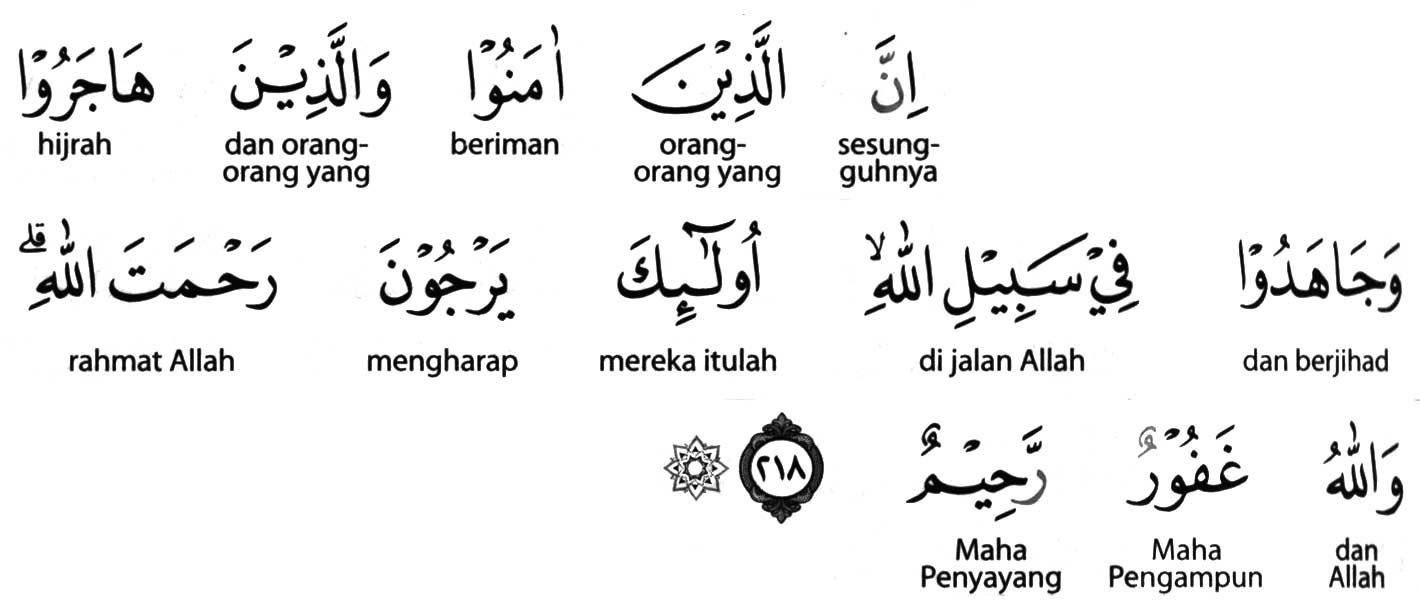 اِنَّ الَّذِيْنَ اٰمَنُوْا وَالَّذِيْنَ هَاجَرُوْا
sesung-guhnya orang-orang yang beriman dan orang-orang yang hijrah
وَجَاهَدُوْا فِيْ سَبِيْلِ اللّٰهِ ۙ اُولٰۤىِٕكَ يَرْجُوْنَ رَحْمَتَ اللّٰهِ ۗ
dan berjihad di jalan Allah mereka itulah mengharap rahmat Allah
وَاللّٰهُ غَفُوْرٌ رَّحِيْمٌ ٢١٨
dan Allah Maha Pengampun Maha Penyayang